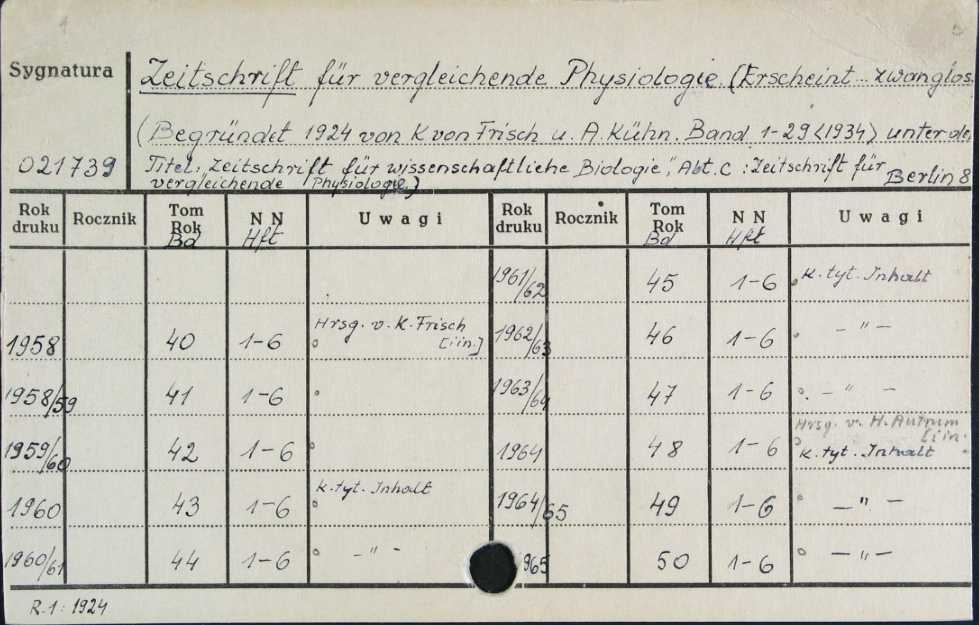 Sygnatura
Zeitschrift für vergleichende Physiologie. (Erscheint zwanglos.
(Begründet 1924 von K von Frisch u. A. Kühn. Band 1-29 <1934> unter de
021739 Titel: "Zeitschrift für wissenschaftliche Biologie", Abt. C : Zeitschrift für
vergleichende Physiologie.) Berlin 8
Rok druku Rocznik Tom Rok Bd NN Hft Uwagi Rok druku Rocznik Tom Rok Bd NN Hft Uwagi
1961/62 45 1-6 K. tyt. Inhalt
1958 40 1-6 Hrsg. v. K. Frisch [i in.] 1962/63 46 1-6 — " —
1958/59 41 1-6 1963/64 47 1-6 — " —
1959/60 42 1-6 1964 48 1-6 Hrsg. v. H. Autrum [i in. K. tyt. Inhalt
1960 43 1-6 K. tyt. Inhalt 1964/65 49 1-6 — " —
1960/61 44 1-6 — " — 965 50 1-6 — " —
R. 1 : 1924